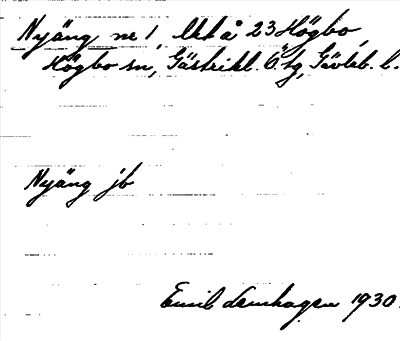 Nyäng ne 1, Utå 23 Högbo,
Högbo sn, Gästrikl. Ö. tg, Gävleb. l.
Nyäng jb
Emil Lemhagen 1930.